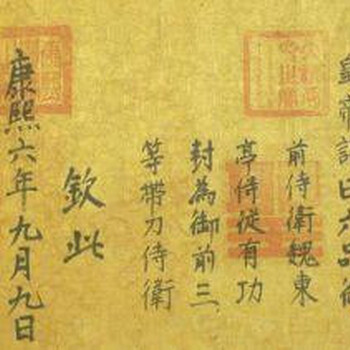 皇帝詔曰六品御
前侍衛魏東
亭侍従有功
封為御前三
等帶刀侍衛
欽此
康熙六年九月九日